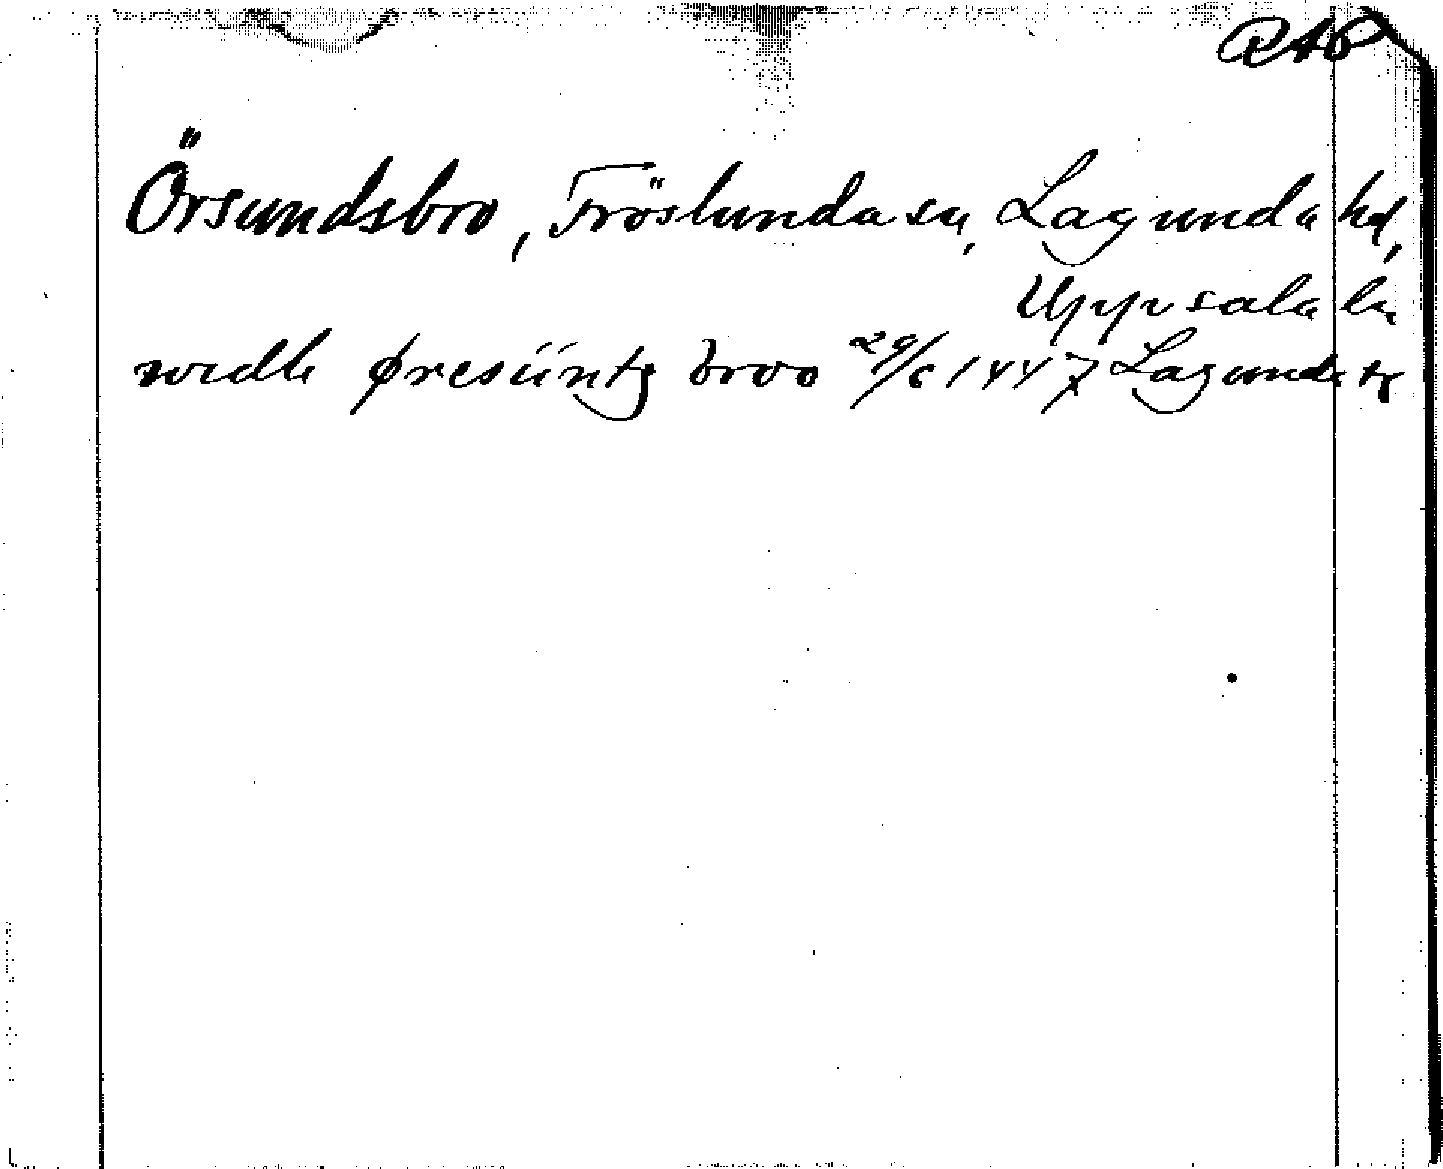 RAP
Örsundsbro, Fröslunda sn, Lagunda hd,
Uppsala län
widh øresüntz broo 29/6 1447 Lagunda